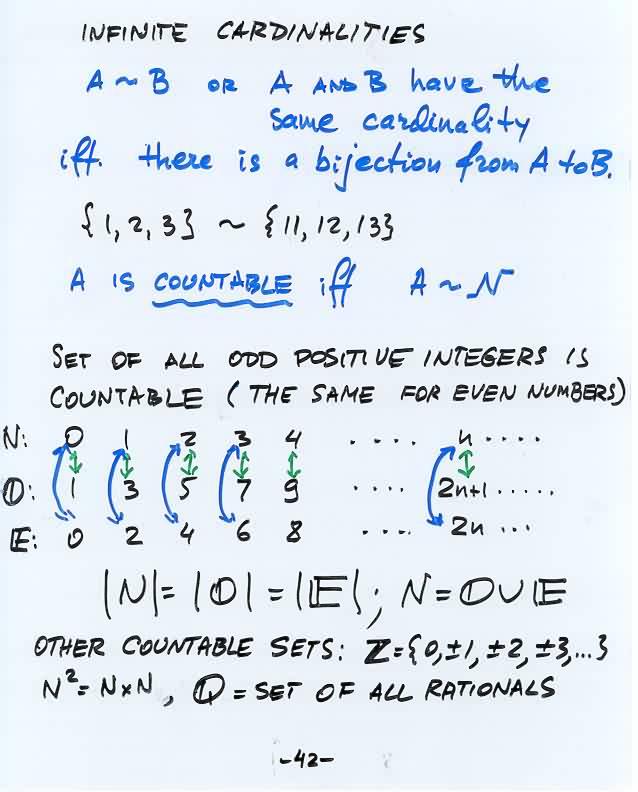 INFINITE CARDINALITIES
A ~ B OR A AND B have the
same cardinality
iff. there is a bijection from A to B.
{1, 2, 3} ~ {11, 12, 13}
A IS COUNTABLE iff A ~ N
SET OF ALL ODD POSITIVE INTEGERS IS
COUNTABLE (THE SAME FOR EVEN NUMBERS)
N: 0 1 2 3 4 .... n ....
O: 1 3 5 7 9 .... 2n+1 .....
E: 0 2 4 6 8 .... 2n ...
|N| = |O| = |E|; N = O ∪ E
OTHER COUNTABLE SETS: Z = {0, ±1, ±2, ±3, ...}
N² = N×N, Q = SET OF ALL RATIONALS
-42-